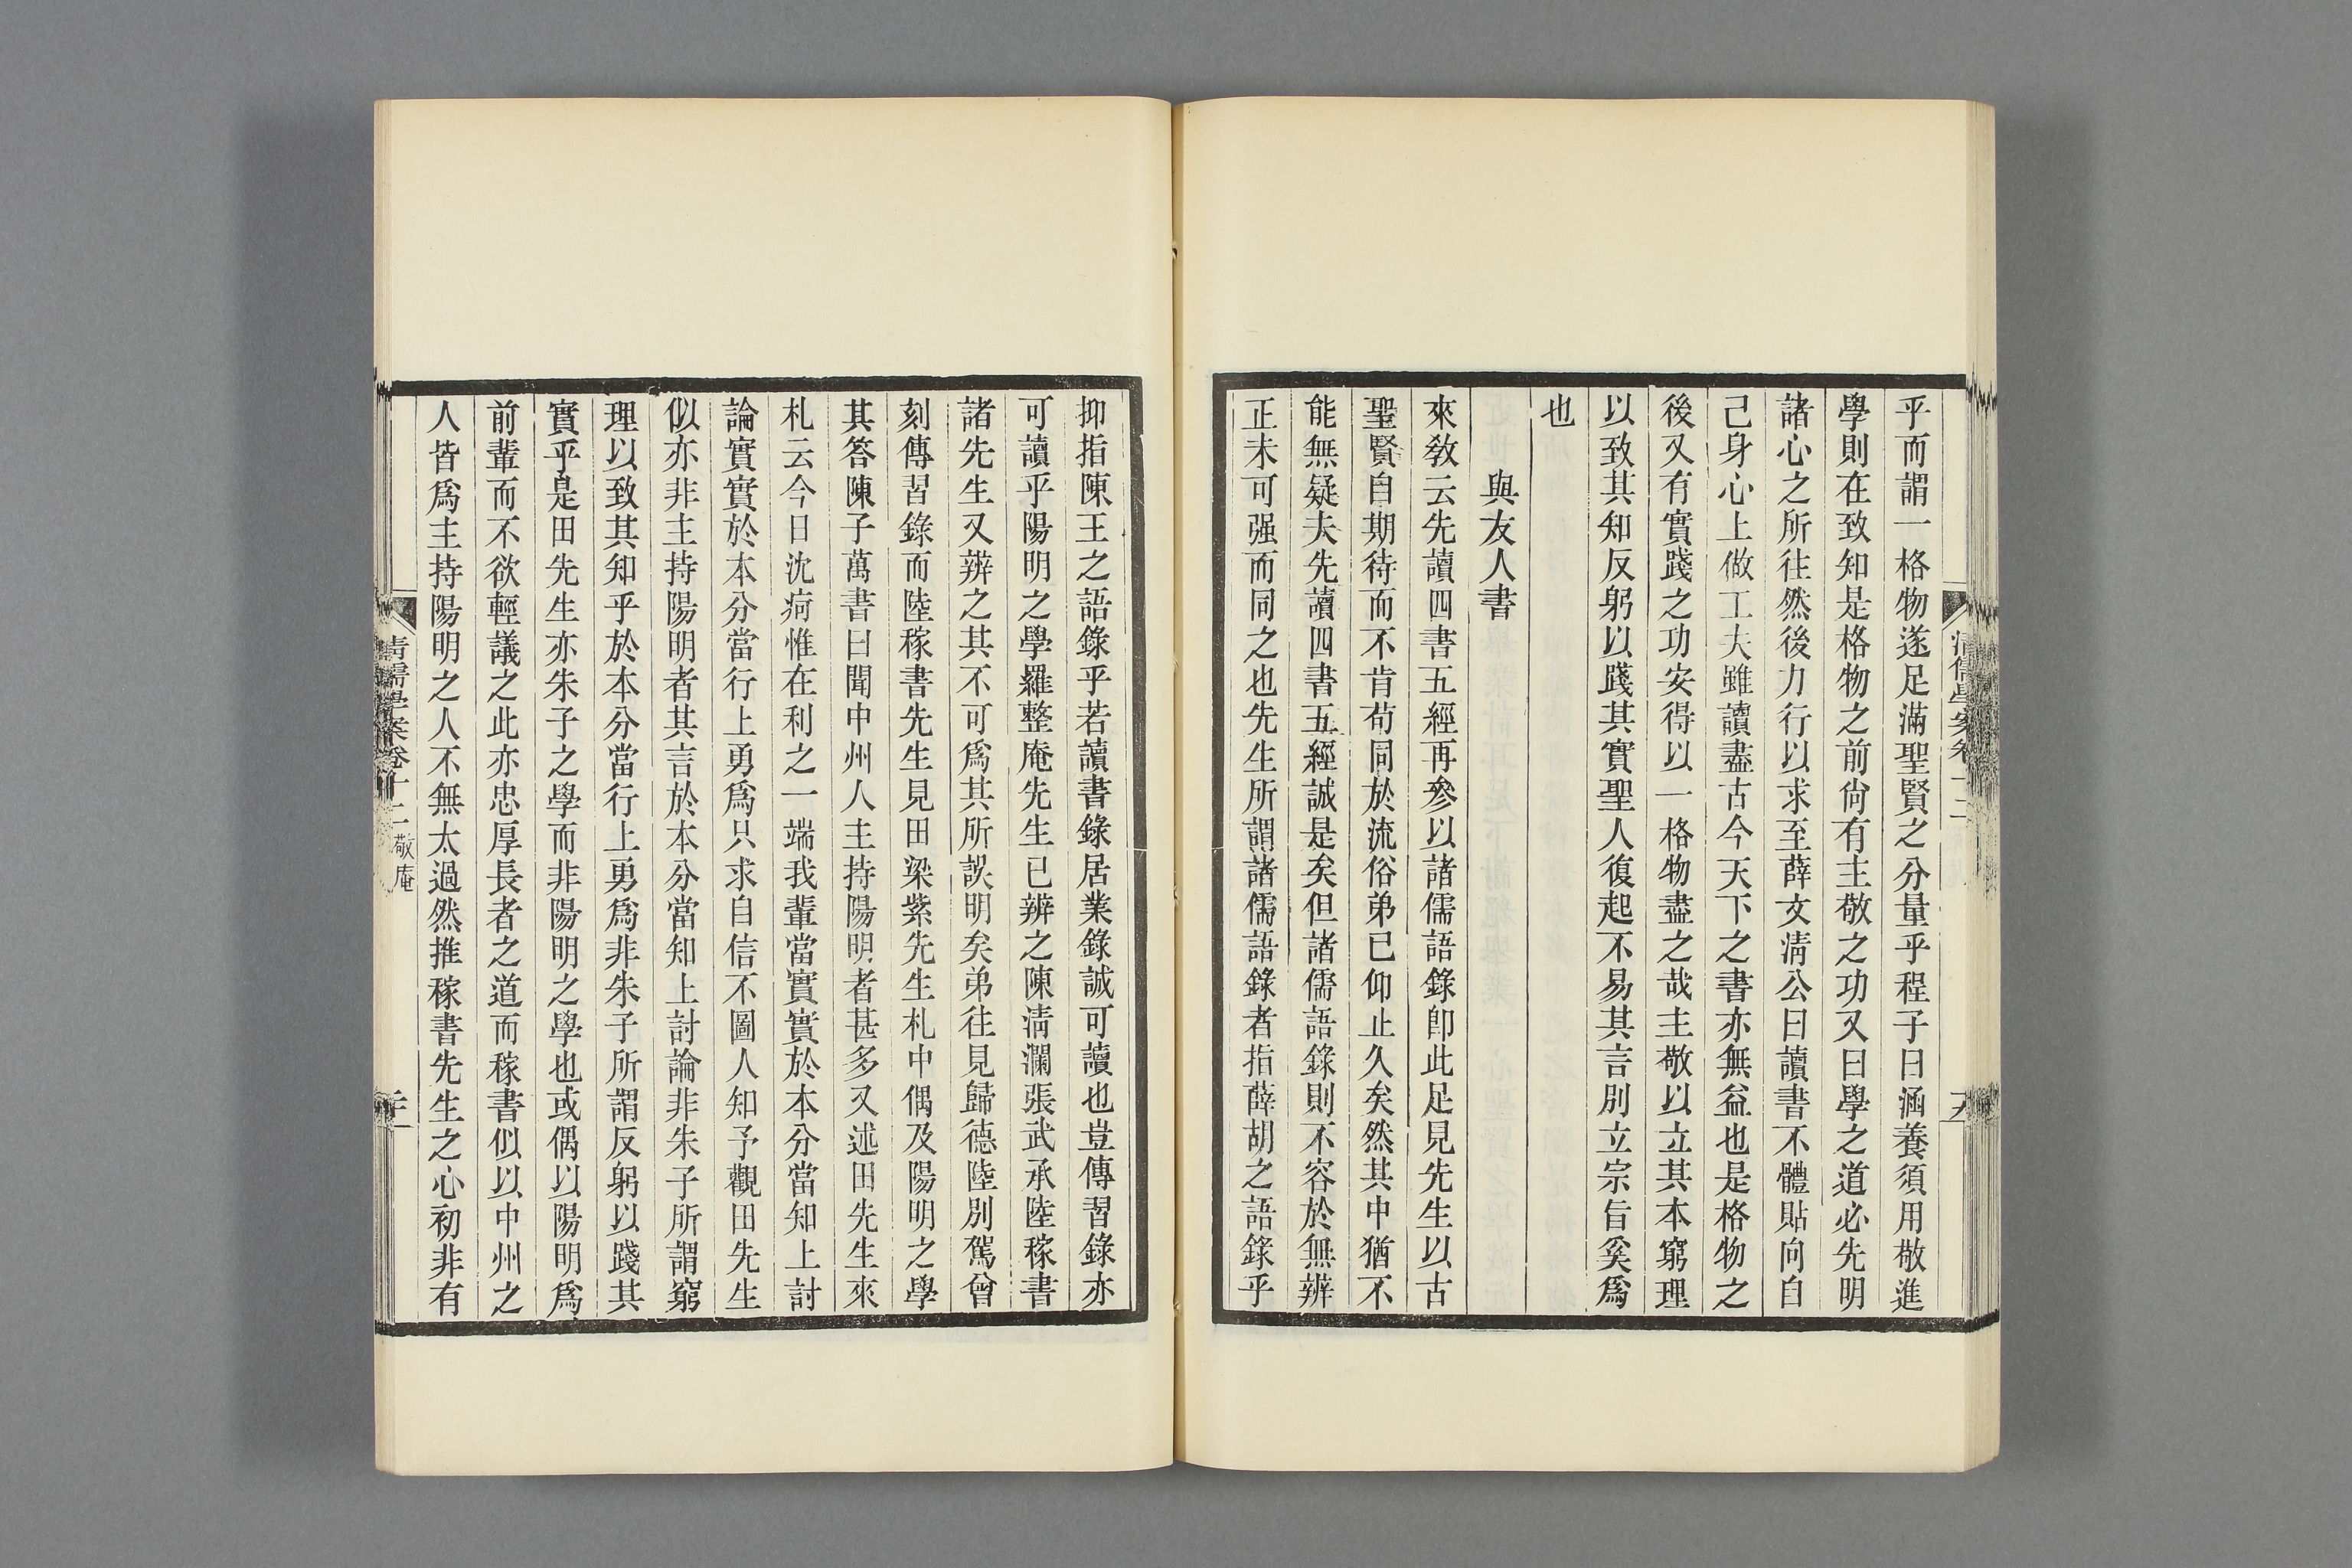 乎而謂一格物遂足滿聖賢之分量乎程子曰涵養須用敬進
學則在致知是格物之前尙有主敬之功又曰學之道必先明
諸心之所往然後力行以求至薛文淸公曰讀書不體貼向自
己身心上做工夫雖讀盡古今天下之書亦無益也是格物之
後又有實踐之功安得以一格物盡之哉主敬以立其本窮理
以致其知反躬以踐其實聖人復起不易其言別立宗旨奚爲
也
與友人書
來敎云先讀四書五經再參以諸儒語錄卽此足見先生以古
聖賢自期待而不肯苟同於流俗弟已仰止久矣然其中猶不
能無疑夫先讀四書五經誠是矣但諸儒語錄則不容於無辨
正未可强而同之也先生所謂諸儒語錄者指薛胡之語錄乎
抑指陳王之語錄乎若讀書錄居業錄誠可讀也豈傳習錄亦
可讀乎陽明之學羅整庵先生已辨之陳淸瀾張武承陸稼書
諸先生又辨之其不可爲其所誤明矣弟往見歸德陸別駕曾
刻傳習錄而陸稼書先生見田梁紫先生札中偶及陽明之學
其答陳子萬書曰聞中州人主持陽明者甚多又述田先生來
札云今日沈疴惟在利之一端我輩當實實於本分當知上討
論實實於本分當行上勇爲只求自信不圖人知予觀田先生
似亦非主持陽明者其言於本分當知上討論非朱子所謂窮
理以致其知乎於本分當行上勇爲非朱子所謂反躬以踐其
實乎是田先生亦朱子之學而非陽明之學也或偶以陽明爲
前輩而不欲輕議之此亦忠厚長者之道而稼書似以中州之
人皆爲主持陽明之人不無太過然推稼書先生之心初非有
清儒學案卷十二 敬庵